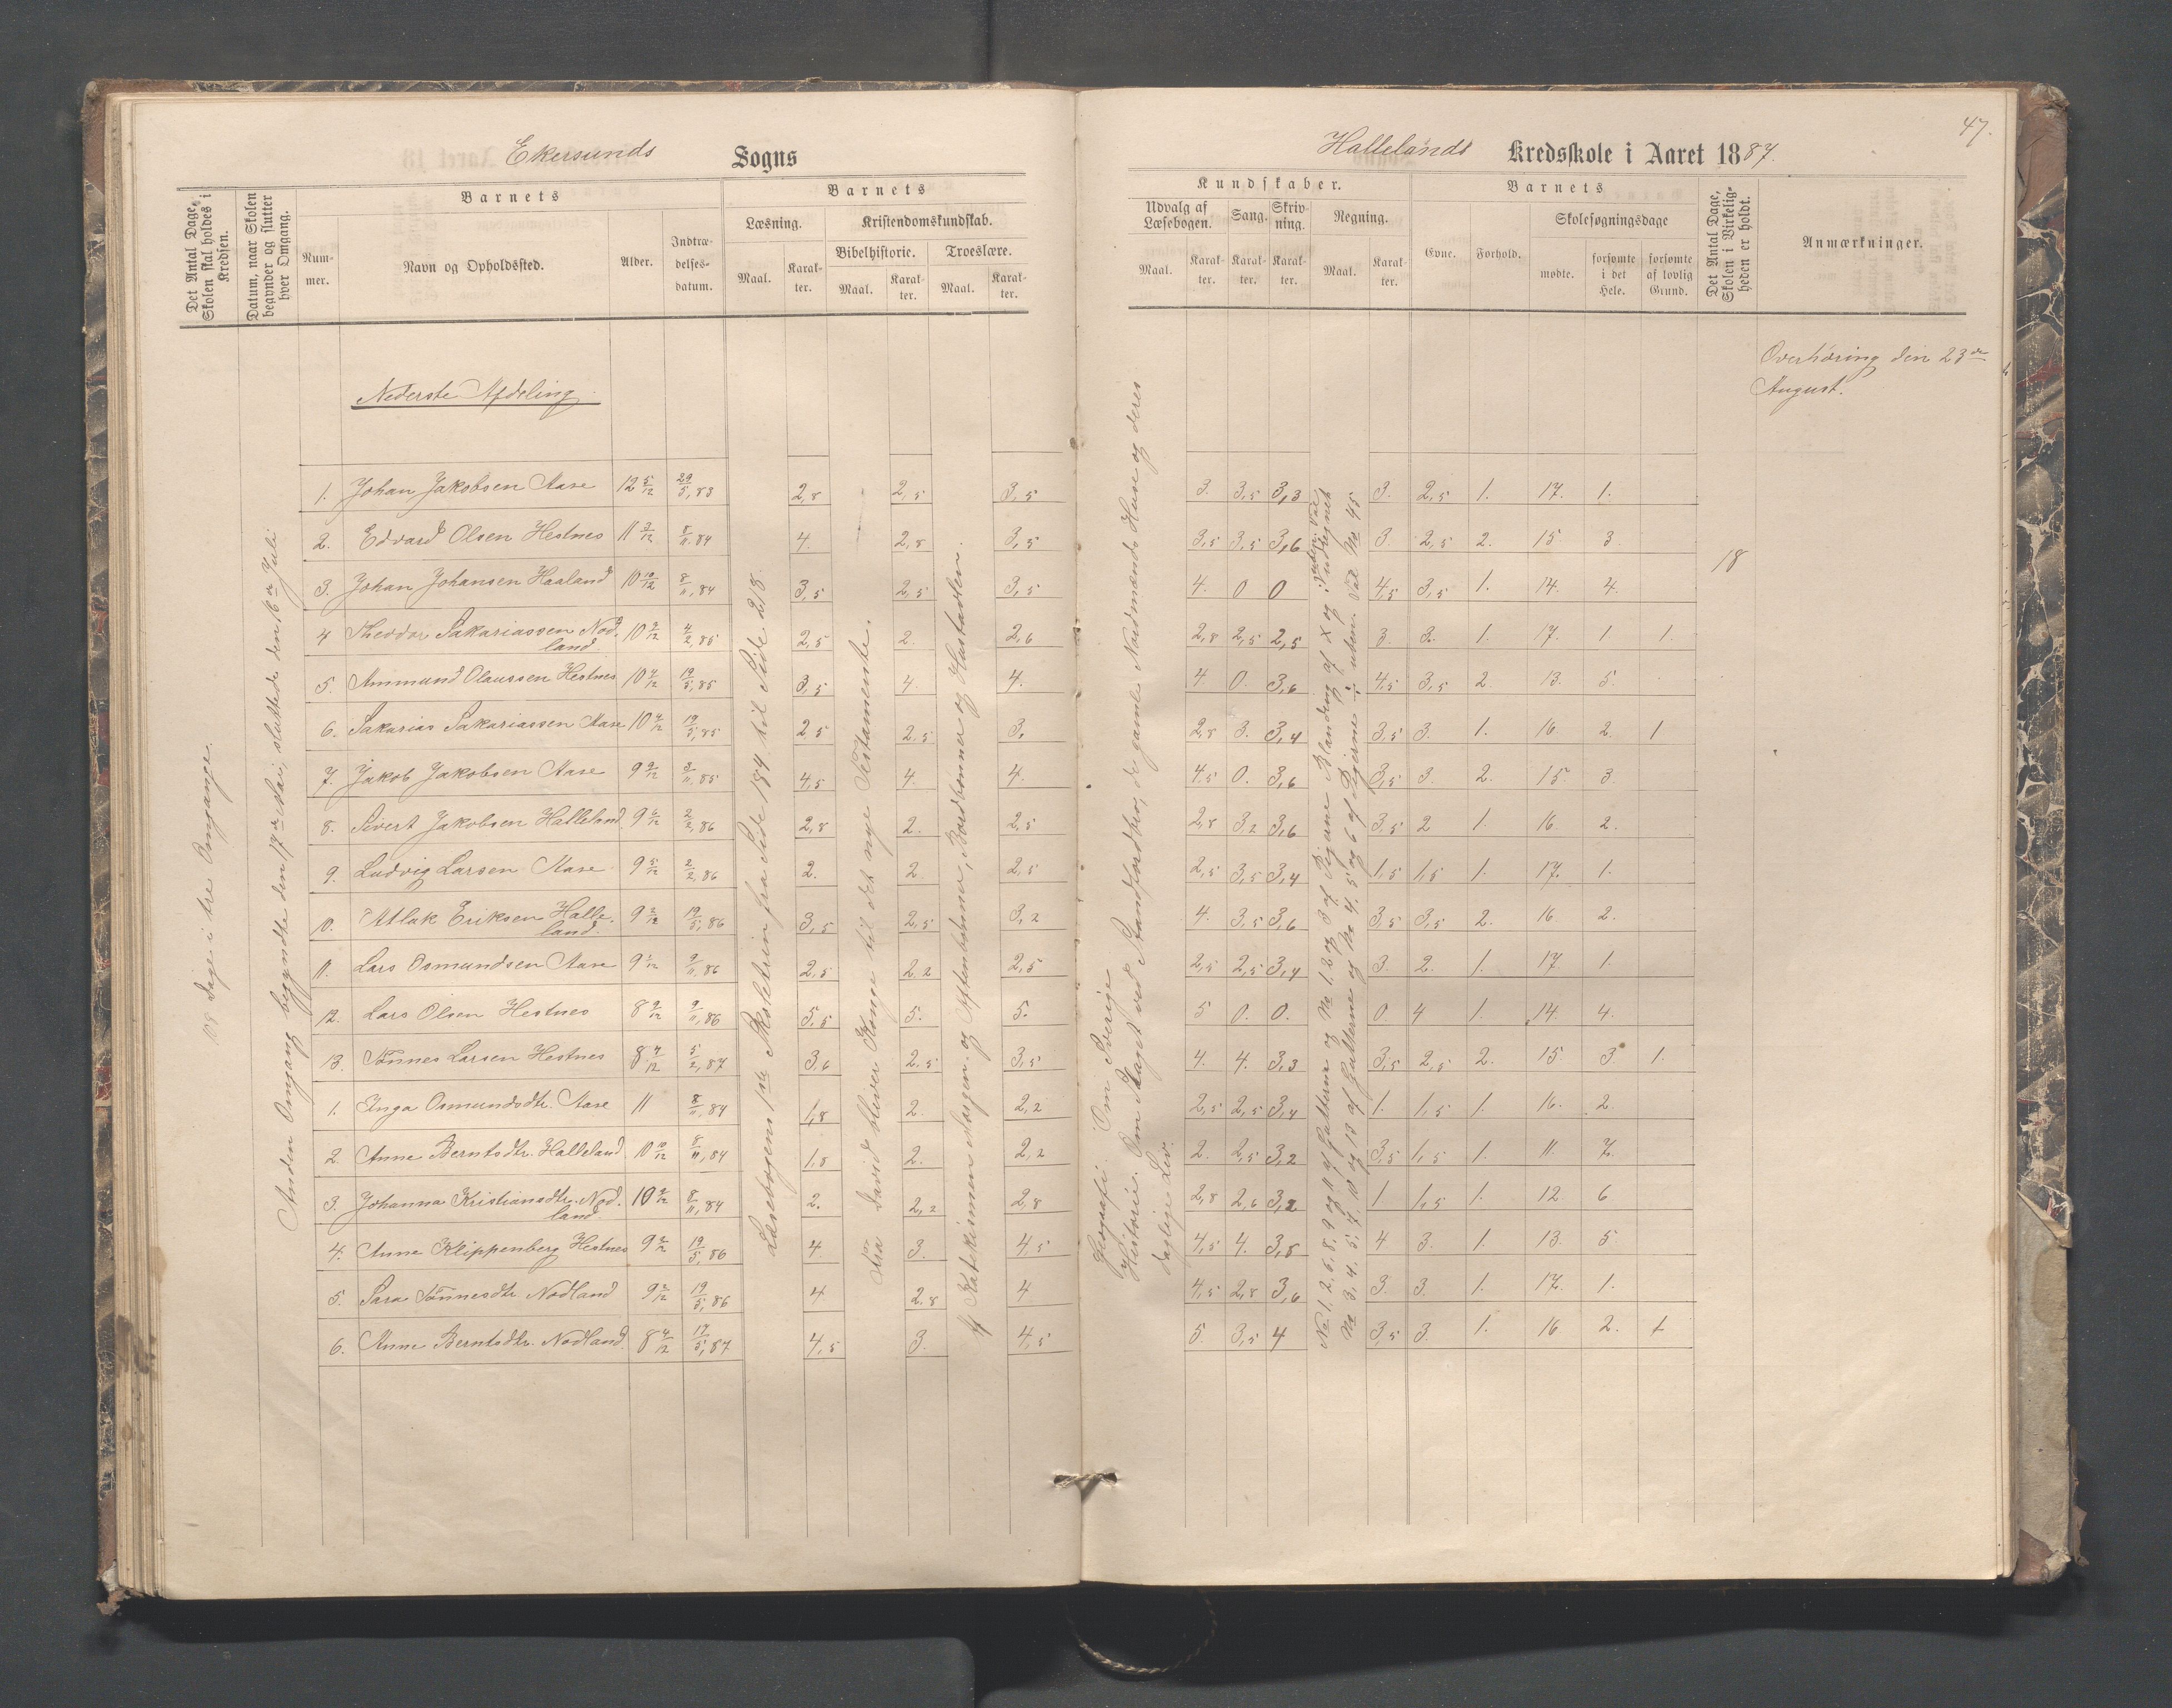 Ekersunds Sogns
Hallelands Kredsskole i Aaret 1887.
47.
Det Antal Dage, Skolen skal holdes i Kredsen.
Datum, naar Skolen begynder og slutter hver Omgang.
Barnets
Nummer.
Navn og Opholdssted.
Alder.
Indtrædelsesdatum.
Barnets
Læsning.
Maal.
Karakter.
Kristendomskundskab.
Bibelhistorie.
Maal.
Karakter.
Troeslære.
Maal.
Karakter.
Kundskaber.
Udvalg af Læsebogen.
Maal.
Karakter.
Sang.
Karakter.
Skrivning.
Karakter.
Regning.
Maal.
Karakter.
Barnets
Evne.
Forhold.
Skolesøgningsdage
mødte.
forsømte i det Hele.
forsømte af lovlig Grund.
Det Antal Dage, Skolen i Virkeligheden er holdt.
Anmærkninger.
Overhöring den 23de
August.
Nederste Afdeling
108 Dage i tre Omgange.
Anden Omgang begyndte den 17de Mai, sluttede den 16de Juli
Læsebogens 1ste Skoletrin fra Side 184 til Side 218.
Fra David bliver Konge til det nye Testamente.
Katekismen Morgen- og Aftenbønner, Bordbønner og Hustavlen.
Geografi. Om Sverige
Historie. Om Slaget ved Standfordbro, de gamle Nordmænds Huse og deres
daglige Liv.
No 1. 2. 6. 8. 9 og 11 af Gutterne og No 1. 2 og 3 af Pigerne Blanding af X og :
No 3. 4. 5. 7. 10 og 13 af Gutterne og No 4. 5 og 6 af Pigerne
1. Johan Jakobsen Aase 12 5/12 29/5,83 2,8 2,5 3,5 3. 3,5 3,3 3. 2,5 1. 17. 1.
2. Edvard Olsen Hestnes 11 3/12 8/11,84 4. 2,8 3,5 3,5 3,5 3,6 3 2,5 2. 15 3.
3. Johan Johansen Haaland 10 10/12 8/11,84 3,5 2,5 3,5 4. 0 0 4,5 3,5 1. 14. 4.
4 Theodor Sakariassen Nodland 10 9/12 4/2,85 2,5 2. 2,6 2,8 2,5 2,5 3. 3. 1. 17. 1 1.
5. Ammund Olaussen Hestnes 10 4/12 19/5,85 3,5 4. 4. 4 0. 3,6 4,5 3,5 2. 13. 5.
6. Sakarias Sakariassen Aase 10 4/12 19/5,85 2,5 2,5 3, 2,8 3. 3,4 3,5 3. 1. 16 2. 1
7. Jakob Jakobsen Aase 9 9/12 3/11,85 4,5 4. 4. 4,5 0. 3,6 3,5 3. 2. 15. 3.
8. Sivert Jakobsen Halleland 9 6/12 2/2,86 2,8 2. 2,5 2,8 3,2 3,6 3,5 2 1. 16. 2.
9. Ludvig Larsen Aase 9 5/12 2/2,86 2. 2. 2,5 2,5 3,5 3,4 1,5 1,5 1. 17. 1.
10. Atlak Eriksen Halleland 9 2/12 19/5,86 3,5 2,5 3,2 4. 3,5 3,6 3,5 3,5 2. 16 2.
11. Lars Osmundsen Aase 9 1/12 9/11,86 2,5 2,2 2,5 2,5 2,5 3,4 3. 2. 1. 17 1.
12. Lars Olsen Hestnes 8 9/12 9/11,86 5,5 5. 5. 5 0. 0. 0. 4 1. 14. 4.
13. Tönnes Larsen Hestnes 8 4/12 5/2,87 3,6 2,5 3,5 4. 4. 3,3 3,5 2,5 2. 15. 3 1.
1. Inga Osmundsdtr. Aase 11 8/11,84 1,8 2. 2,2 2,5 2,5 3,4 1. 1,5 1. 16. 2
2. Anne Berntsdtr. Halleland 10 10/12 8/11,84 1,8 2. 2,2 2. 2,5 3,2 3,5 1,5 1. 11. 7.
3. Johanna Kristiansdtr. Nodland 10 9/12 8/11,84 2. 2,2 2,8 2,8 2,6 3,2 1. 1,5 1. 12. 6
4. Anne Klippenberg Hestnes 9 2/12 19/5,86 4 3. 4,5 4,5 4. 3,8 4 3. 1. 13. 5
5. Sara Tönnesdtr Nodland 9 2/12 19/5,86 4 2,8 4 4,5 2,8 3,6 3. 3. 1. 17. 1.
6. Anne Berntsdtr. Nodland 8 4/12 17/5,87 4,5 3. 4,5 5. 3,5 4 3,5 3. 1. 16 2. 1
18